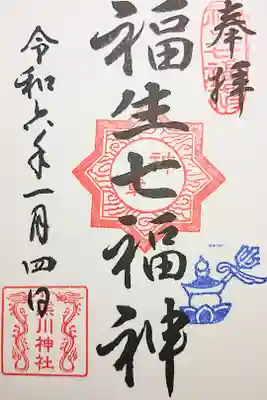 奉拝
福生七福神
令和六年一月四日
川神社